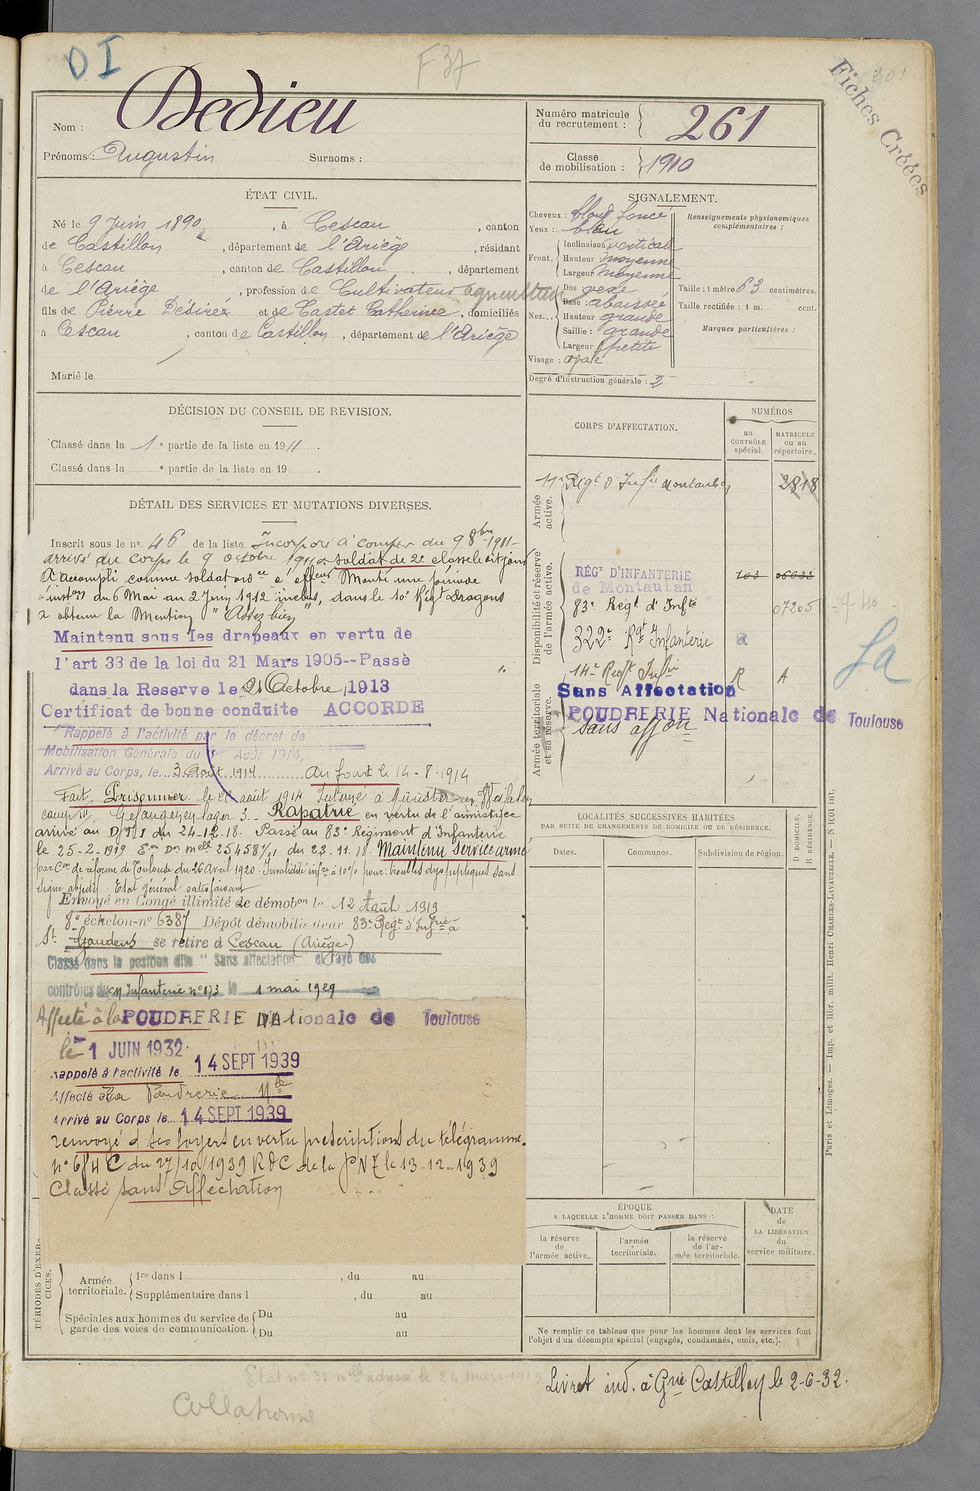 OI
F37
Fiches Créées
Nom : Dedieu
Prénoms : Augustin Surnoms :
Numéro matricule du recrutement : 261
Classe de mobilisation : 1910
ÉTAT CIVIL.
Né le 9 Juin 1890, à Cescau, canton
de Castillon, département de l'Ariège, résidant
à Cescau, canton de Castillon, département
de l'Ariège, profession de Cultivateur agriculteur
fils de Pierre Désirée et de Castet Catherine, domiciliés
à Cescau, canton de Castillon, département de l'Ariège
Marié le
SIGNALEMENT.
Cheveux : blond foncé
Yeux : bleu
Front. Inclinaison verticale
Hauteur : moyenne
Largeur moyenne
Nez... Dos vexe
Base : abaissée
Hauteur grande
Saillie : grande
Largeur petite
Visage : ovale
Degré d'instruction générale : 2
Renseignements physionomiques complémentaires :
Taille : 1 mètre 63 centimètres.
Taille rectifiée : 1 m. cent.
Marques particulières :
DÉCISION DU CONSEIL DE REVISION.
Classé dans la 1e partie de la liste en 1911.
Classé dans la e partie de la liste en 19 .
DÉTAIL DES SERVICES ET MUTATIONS DIVERSES.
Inscrit sous le no 46 de la liste Incorporé à compter du 9 8bre 1911-
arrivé au corps le 9 octobre 1911 soldat de 2e classe le dit jour
A accompli comme soldat une période
du 6 Mai au 2 Juin 1912 inclus, dans le 10e Régt Dragons
a obtenu la Mention "Assez bien"
Maintenu sous les drapeaux en vertu de
l'art 33 de la loi du 21 Mars 1905--Passé
dans la Reserve le 21 Octobre 1913
Certificat de bonne conduite ACCORDE
Rappelé à l'activité par le décret de
Mobilisation Générale du 1er Août 1914,
Arrivé au Corps, le 3 Août 1914 Au front le 14-8-1914
Fait Prisonnier le août 1914 Interné à Münster en Westphalen
camp Gefangenenlager 3. Rapatrié en vertu de l'armistice
arrivé au du 24-12-18. Passé au 83e Régiment d'Infanterie
le 25-2-1919 25458/1 du 23.11.18 Maintenu service armé
par Con de réforme de Toulouse du 26 Avril 1920. Invalidité infre à 10% pour: troubles dyspeptiques sans
signe objectif. Etat général satisfaisant
Envoyé en Congé illimité de démobon le 12 Août 1919
8e échelon no 6387 Dépôt démobilisateur 83e Régt d'Infrie à
St Gaudens se retire à Cescau (Ariège)
Classé dans la position dite "Sans affectation" et rayé des
contrôles du Infanterie no 173 le 1 mai 1929
Affecté à la POUDRERIE Nationale de Toulouse
le 1 JUIN 1932
Rappelé à l'activité le 14 SEPT 1939
Affecté à La Poudrerie Nle
Arrivé au Corps le 14 SEPT 1939
renvoyé à ses foyers en vertu prescriptions du télégramme
no 6/4 C du 27/10/1939 RDC de la PNT le 13-12-1939
Classé sans affectation
CORPS D'AFFECTATION.
NUMÉROS
au CONTRÔLE spécial.
MATRICULE ou au répertoire.
Armée active.
11e Régt d'Infie Montauban 2818
Disponibilité et réserve de l'armée active.
RÉGt D'INFANTERIE
de Montauban
83e Régt d'Infie 07205
322e Rgt Infanterie R
14e Regt Infie R A
La
Armée territoriale et sa réserve.
Sans Affectation
POUDRERIE Nationale de Toulouse
sans affon
LOCALITÉS SUCCESSIVES HABITÉES
PAR SUITE DE CHANGEMENTS DE DOMICILE OU DE RÉSIDENCE.
Dates. Communes. Subdivision de région.
D DOMICILE.
R RÉSIDENCE.
ÉPOQUE
A LAQUELLE L'HOMME DOIT PASSER DANS :
la réserve de l'armée active.
l'armée territoriale.
la réserve de l'armée territoriale.
DATE de LA LIBÉRATION du service militaire.
Ne remplir ce tableau que pour les hommes dont les services font
l'objet d'un décompte spécial (engagés, condamnés, omis, etc.).
PÉRIODES D'EXERCICES.
Armée territoriale. 1re dans l , du au
Supplémentaire dans l , du au
Spéciales aux hommes du service de garde des voies de communication. Du au
Du au
Paris et Limoges. — Imp. et libr. milit. Henri CHARLES-LAVAUZELLE. — N 1601 int.
Livret ind. à Gnie Castillon le 2-6-32.